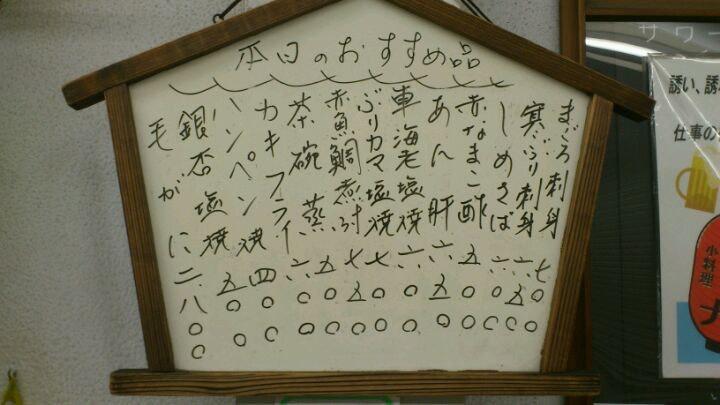 本日のおすすめ品
まぐろ刺身 七〇〇
寒ぶり刺身 六五〇
しめさば 六〇〇
赤なまこ酢 五〇〇
あん肝 六五〇
車海老塩焼 六〇〇
ぶりカマ塩焼 七〇〇
赤魚鯛煮付 七五〇
茶碗蒸 五〇〇
カキフライ 六〇〇
ハンペン焼 四〇〇
銀杏塩焼 五〇〇
毛がに 二、八〇〇
サワ
誘い、誘
仕事の
小料理